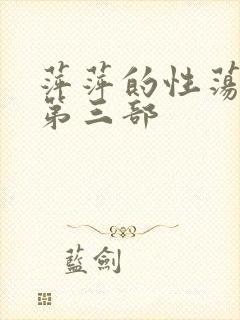 萍萍的性蕩
第三部
藍劍